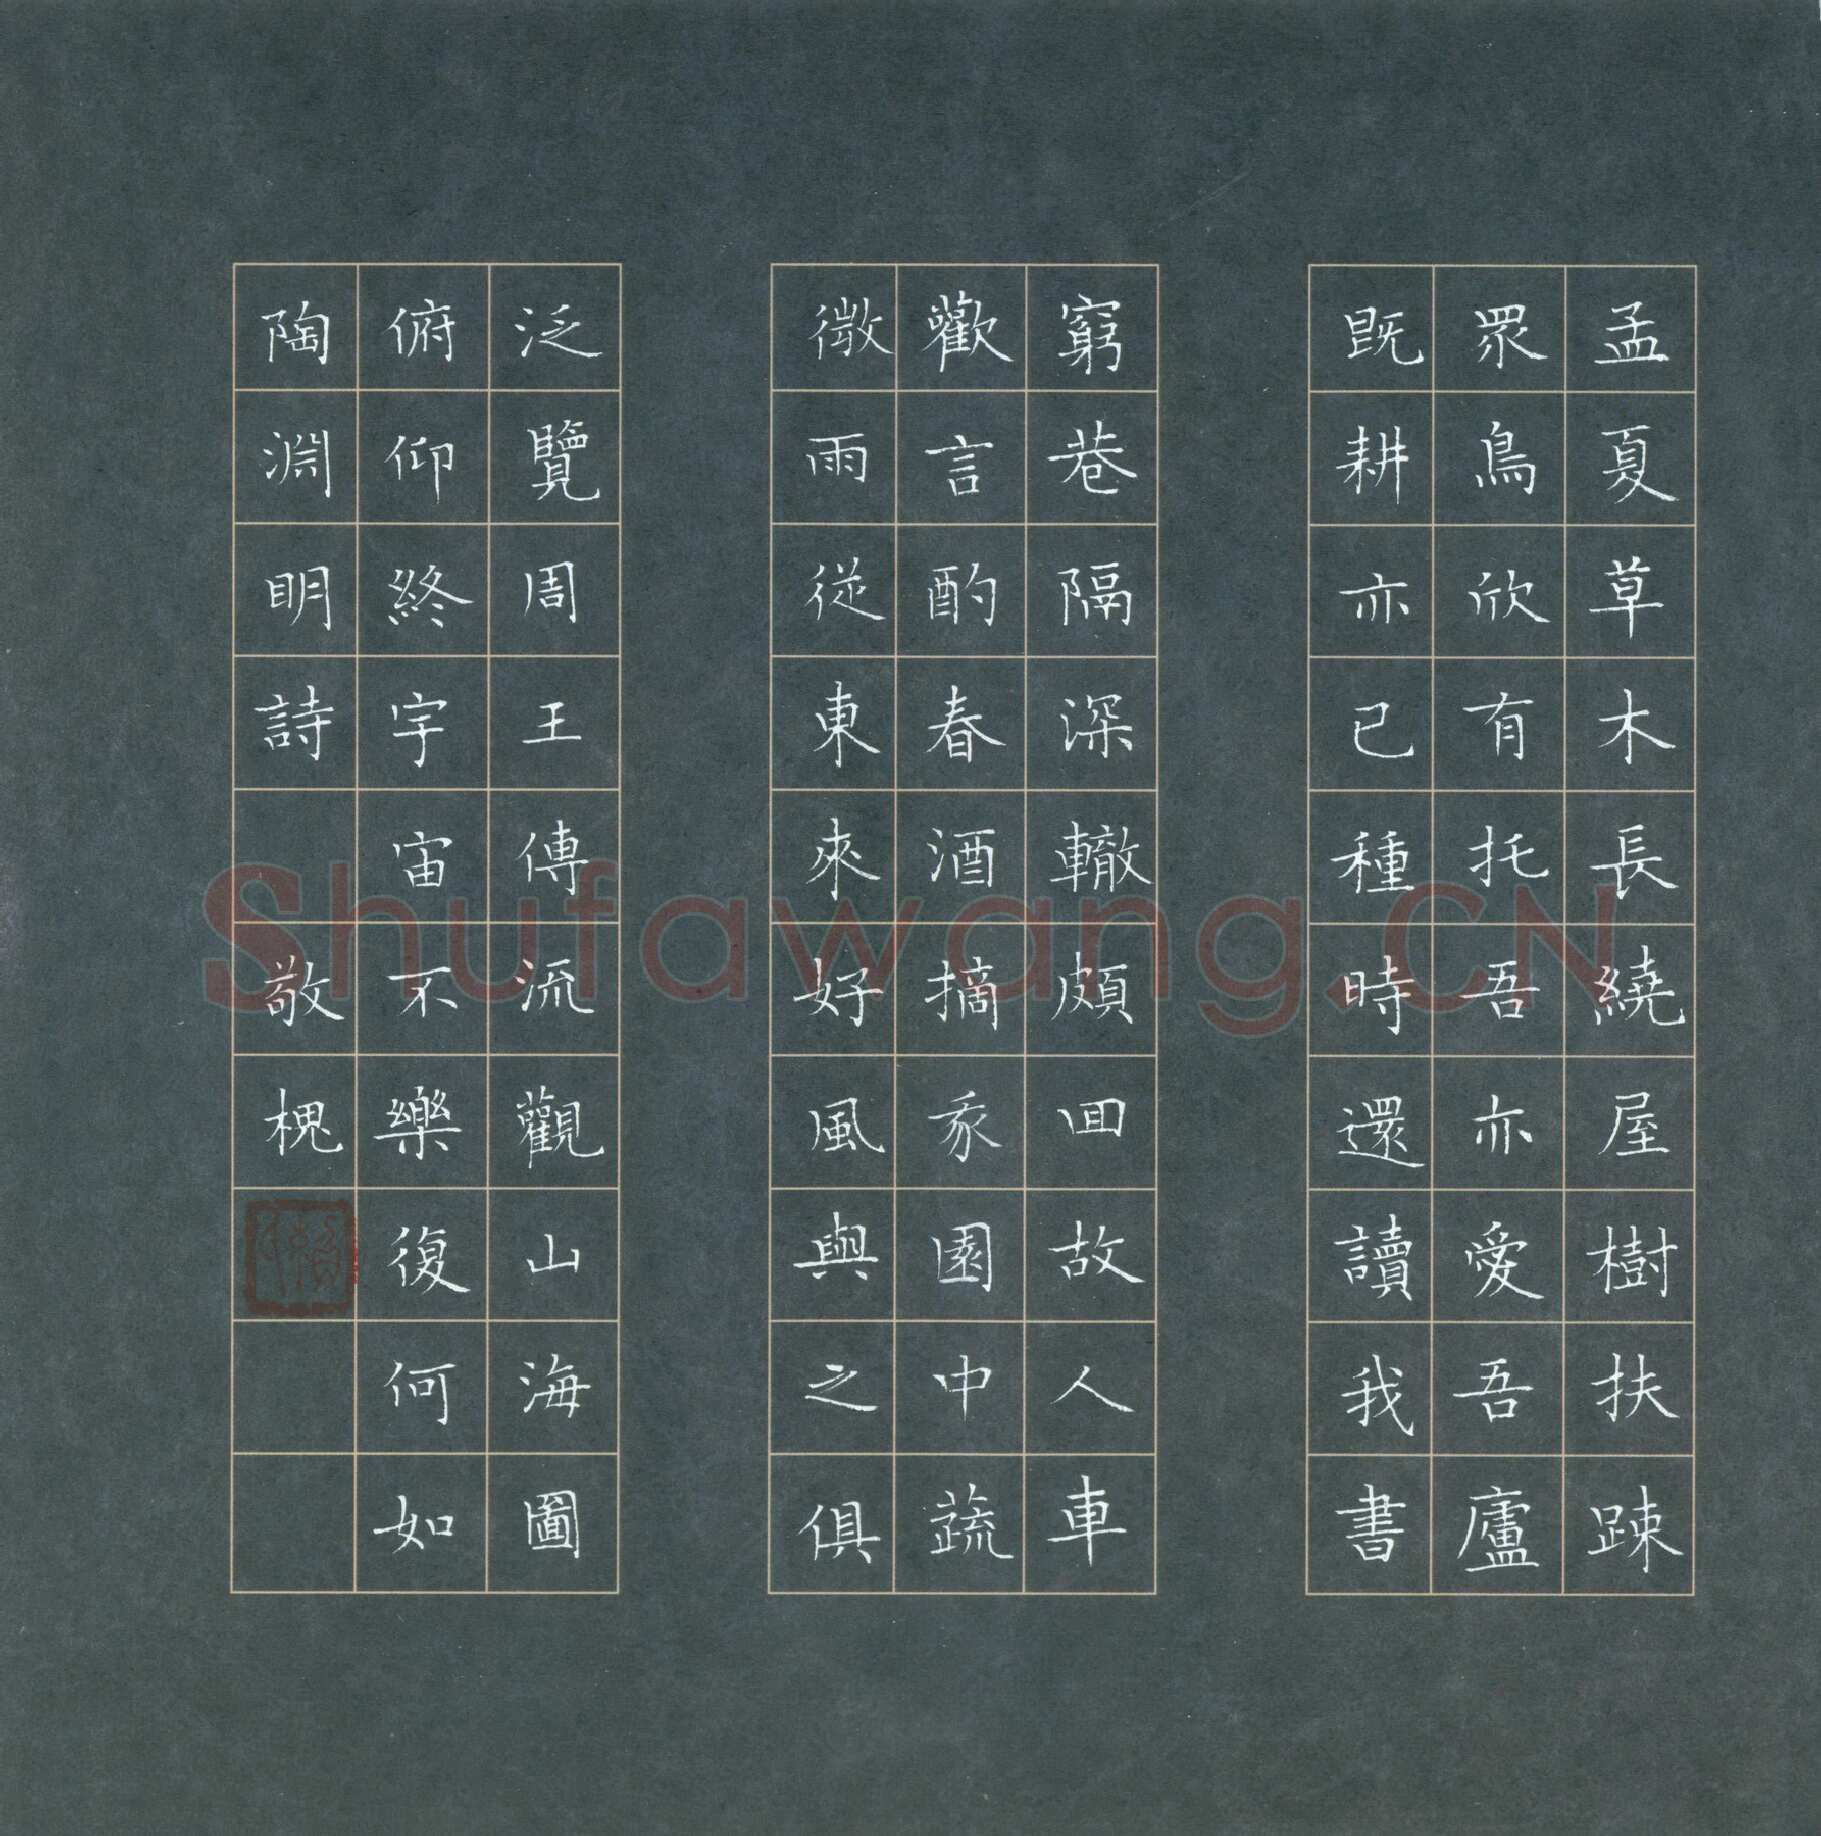 孟夏草木長繞屋樹扶踈
眾鳥欣有托吾亦愛吾廬
既耕亦已種時還讀我書
窮巷隔深轍頗回故人車
歡言酌春酒摘我園中蔬
微雨從東來好風與之俱
泛覽周王傳流觀山海圖
俯仰終宇宙不樂復何如
陶淵明詩 敬槐
Shufawang.CN